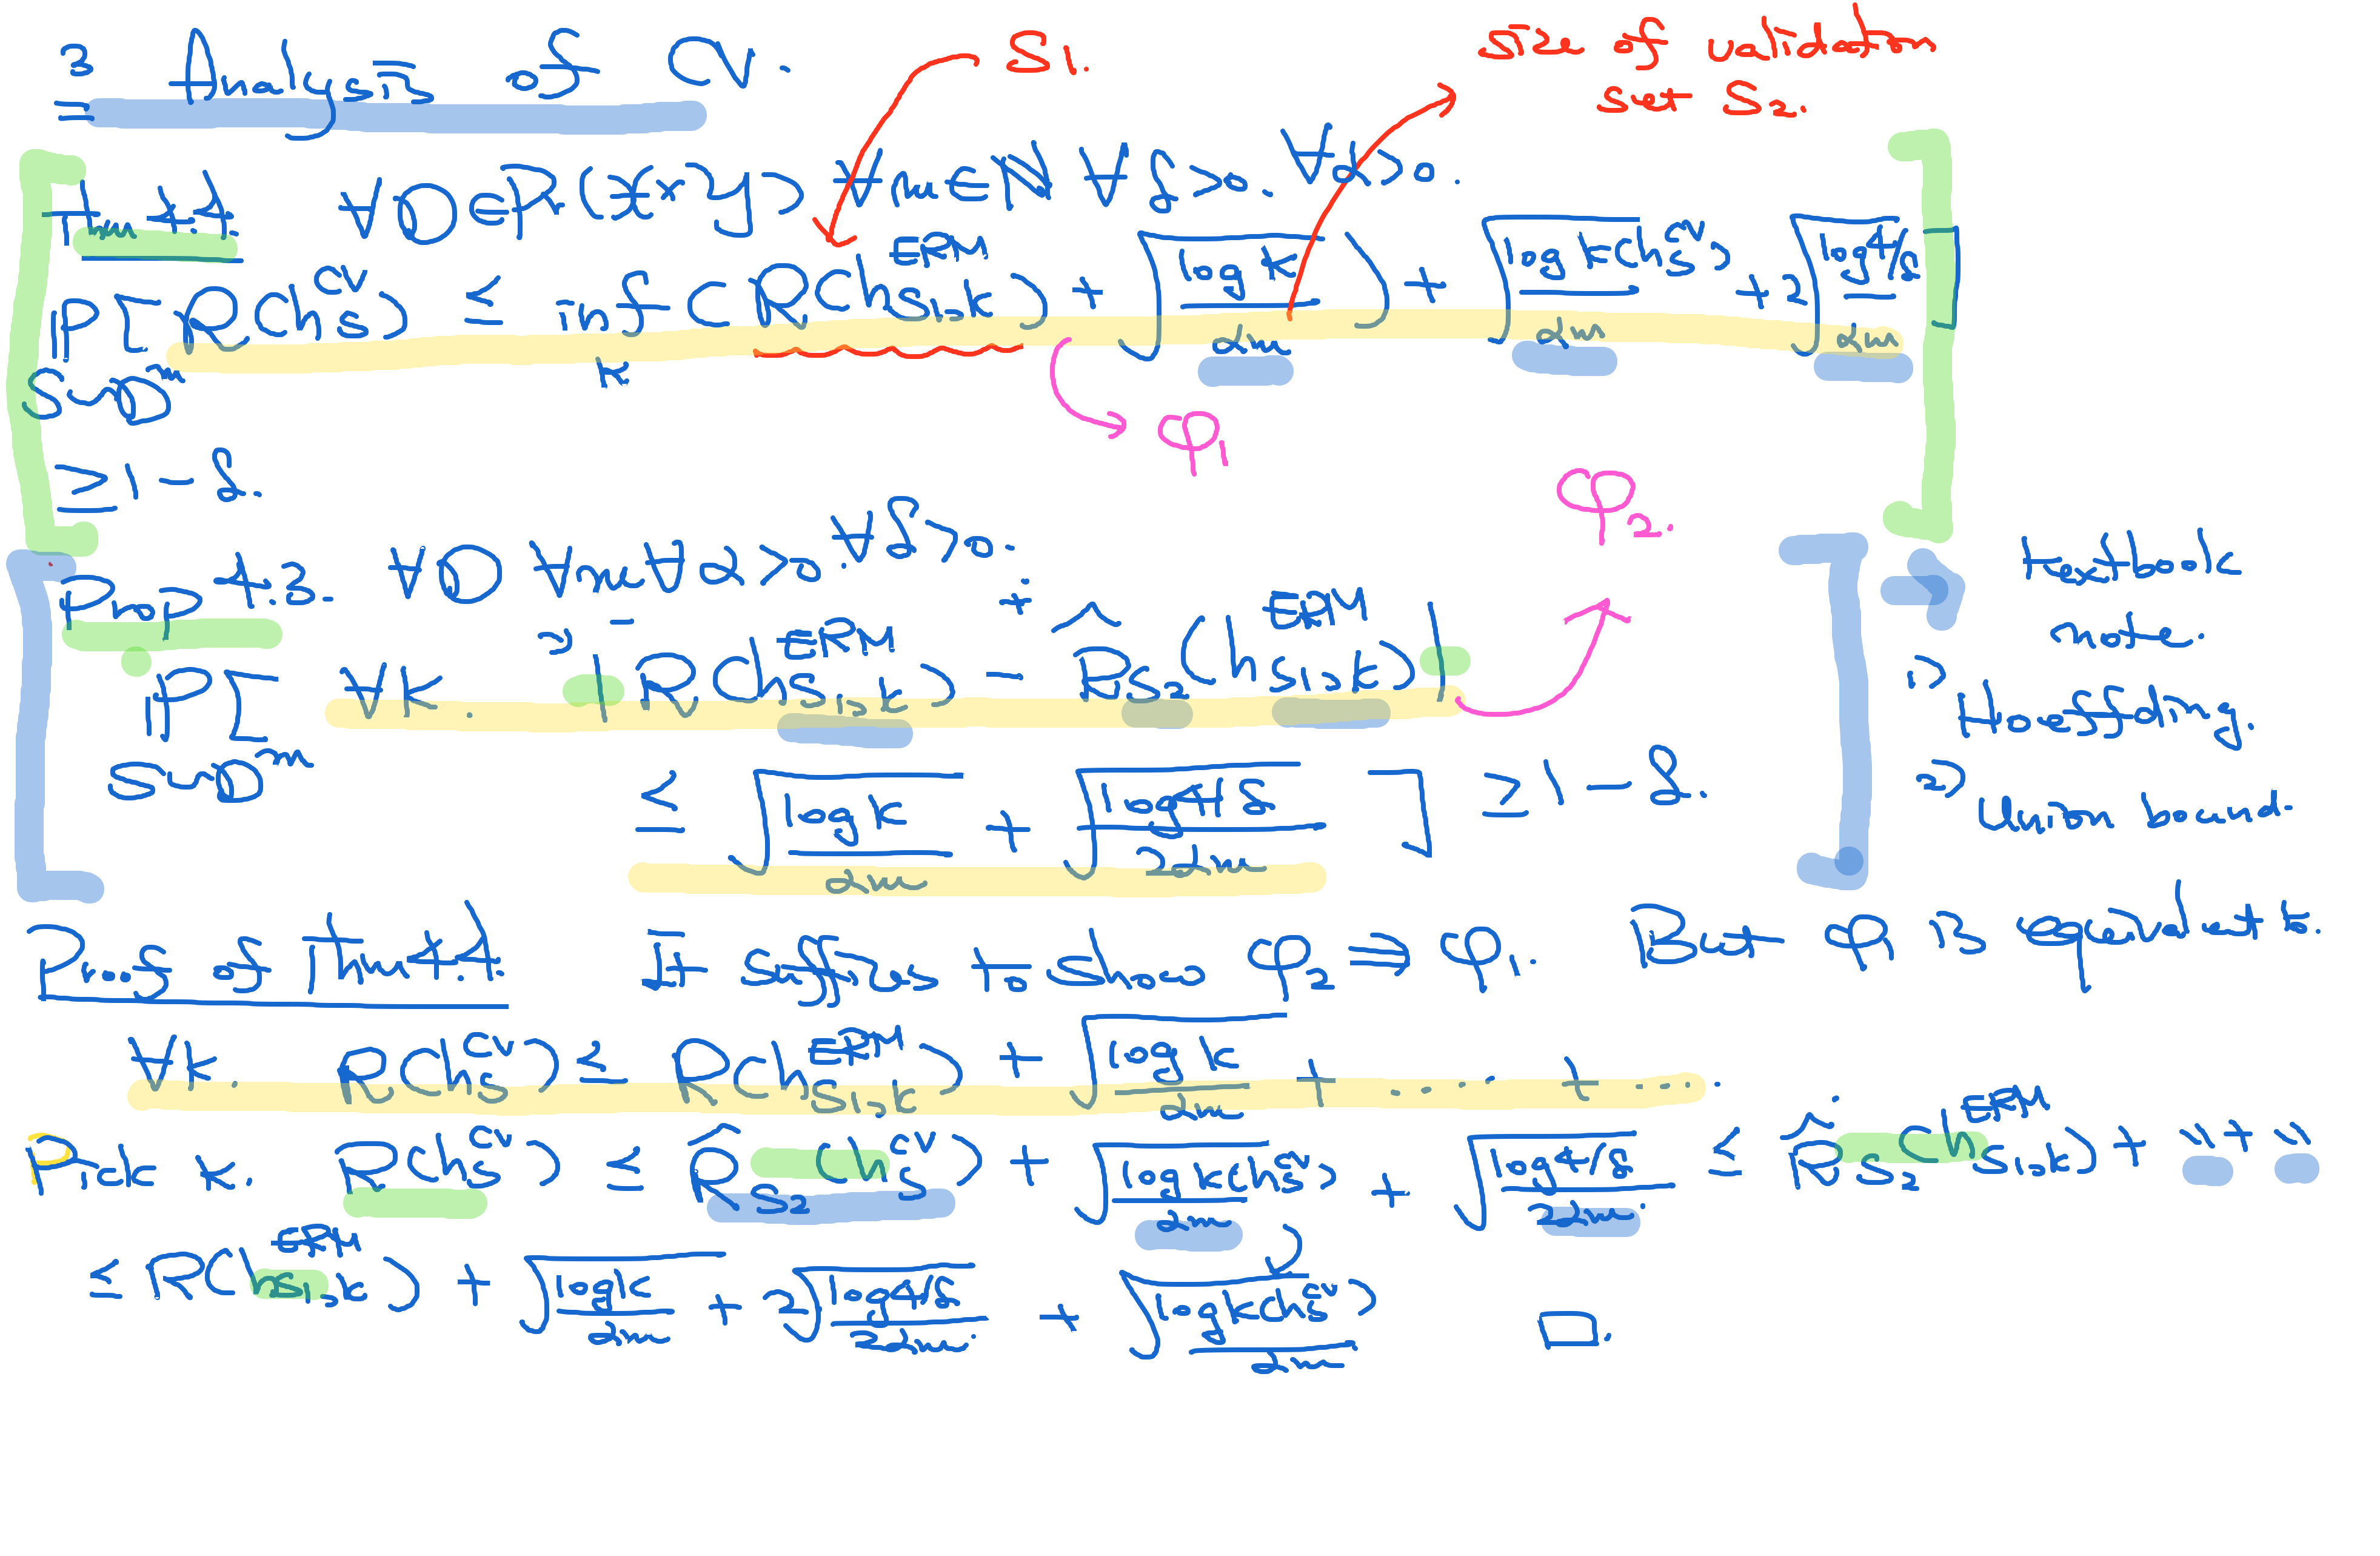 3 Analysis of CV.
S₁.
size of validation
set S₂.
Thm 4.4. ∀D ∈ P(X×Y) ∀m∈ℕ ∀δ>0. ∀α>0.
P_{S~D^m} [ R(h_S^{CV}) ≤ inf_k ( R(h_{S₁,k}^{ERM}) + √(log k / αm) ) + √(log k(h_S^{CV}) / αm) + 2√(log 4/δ / αm) ]
φ₁
≥ 1-δ.
φ₂.
Prop 4.3. ∀D ∀m ∀α>0. ∀δ>0.
P_{S~D^m} [ ∀k. | R(h_{S₁,k}^{ERM}) - R̂_{S₂}(h_{S₁,k}^{ERM}) |
≤ √(log k / αm) + √(log 4/δ / 2αm) ] ≥ 1-δ.
textbook
note.
1)
Hoeffding.
2)
Union bound.
Proof of Thm 4.4. It suffices to show φ₂ ⇒ φ₁. But φ₁ is equivalent to.
∀k. R(h_S^{CV}) ≤ R(h_{S₁,k}^{ERM}) + √(log k / αm) + .... + .....
Pick k. R(h_S^{CV}) ≤ R̂_{S₂}(h_S^{CV}) + √(log k(h_S^{CV}) / αm) + √(log 4/δ / 2αm) ≤ R̂_{S₂}(h_{S₁,k}^{ERM}) + 〃 + 〃
≤ R(h_{S₁,k}^{ERM}) + √(log k / αm) + 2√(log 4/δ / 2αm) + √(log k(h_S^{CV}) / αm) □.